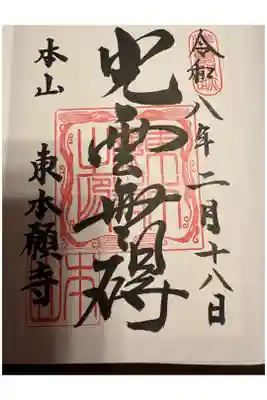 令和八年二月十八日
光雲無碍
本山
東本願寺